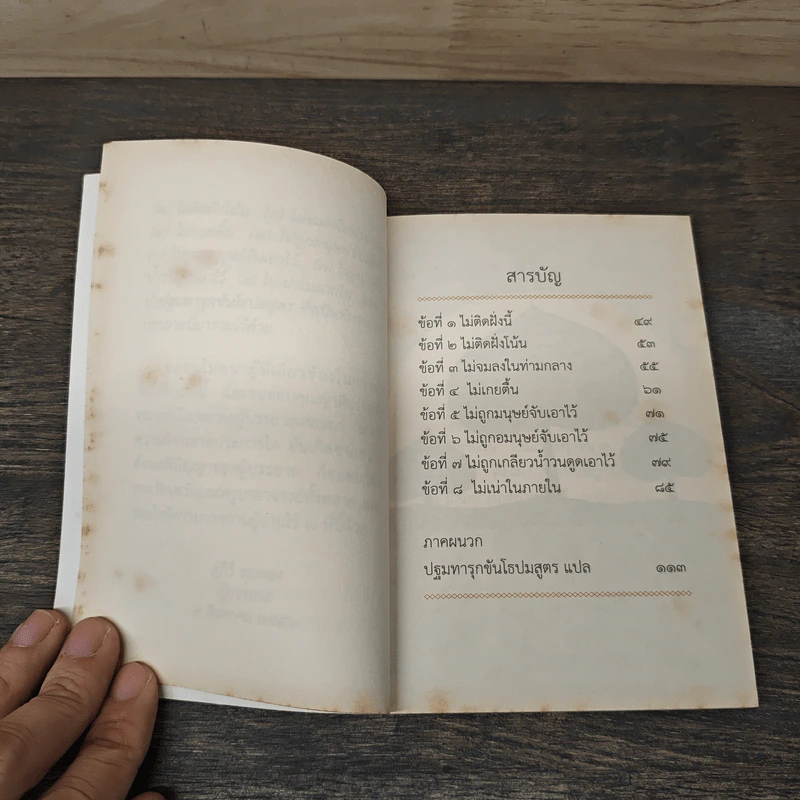 สารบัญ
ข้อที่ ๑ ไม่ติดฝั่งนี้ ๔๙
ข้อที่ ๒ ไม่ติดฝั่งโน้น ๕๓
ข้อที่ ๓ ไม่จมลงในท่ามกลาง ๕๕
ข้อที่ ๔ ไม่เกยตื้น ๖๑
ข้อที่ ๕ ไม่ถูกมนุษย์จับเอาไว้ ๗๑
ข้อที่ ๖ ไม่ถูกอมนุษย์จับเอาไว้ ๗๕
ข้อที่ ๗ ไม่ถูกเกลียวน้ำวนดูดเอาไว้ ๗๙
ข้อที่ ๘ ไม่เน่าในภายใน ๘๕
ภาคผนวก
ปฐมทารุกขันโธปมสูตร แปล ๑๑๓